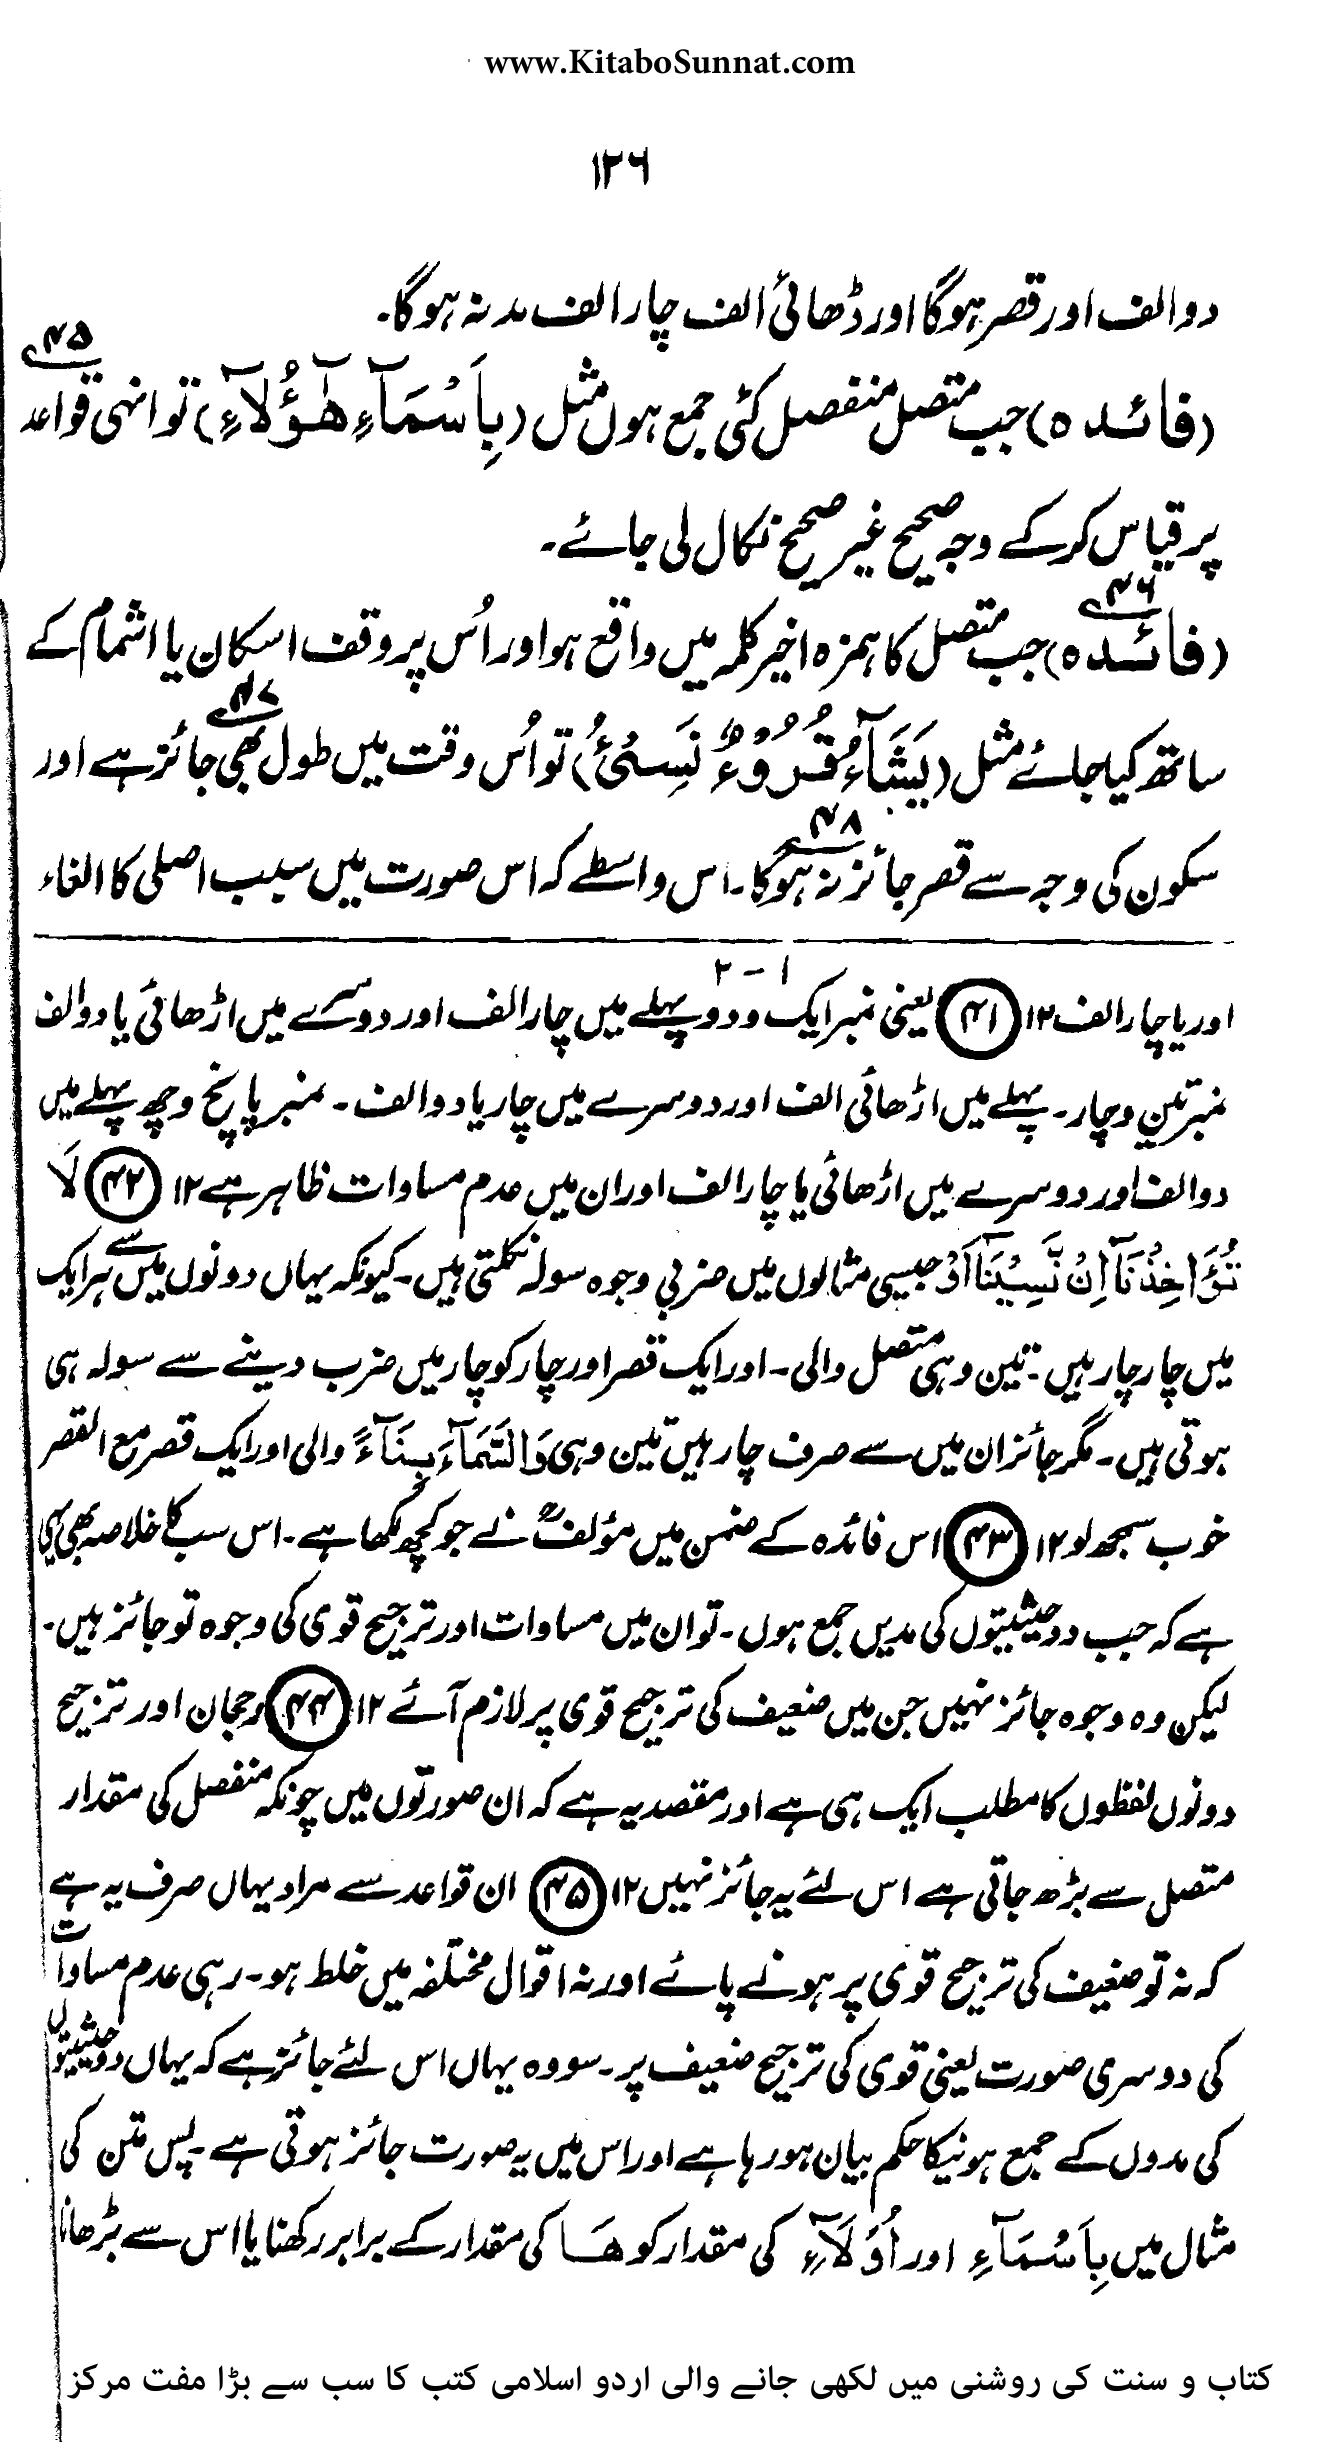 www.KitaboSunnat.com
۱۲۶
دو الف اور قصر ہوگا اور ڈھائی الف چار الف مد نہ ہوگا۔
(فائدہ) جب متصل منفصل کئی جمع ہوں مثل (بِاَسْمَآءِ هٰٓؤُلَآءِ) تو انہی قواعد ۴۵
پر قیاس کرکے وجہ صحیح غیر صحیح نکال لی جائے۔
(فائدہ) ۴۶ جب متصل کا ہمزہ اخیر کلمہ میں واقع ہو اور اُس پر وقف اسکان یا اشمام کے
ساتھ کیا جائے مثل (يَشَآءُ قُرُوْٓءٌ نَسِیْٓءُ) تو اُس وقت میں طول ۴۷ بھی جائز ہے اور
سکون کی وجہ سے قصر جائز نہ ہوگا ۴۸۔ اس واسطے کہ اس صورت میں سبب اصلی کا الغاء
اور یا چار الف ۱۲ (۴۱) یعنی نمبر ایک و دو ۱-۲ پہلے میں چار الف اور دوسرے میں اڑھائی یا دو الف
نمبر تین و چار۔ پہلے میں اڑھائی الف اور دوسرے میں چار یا دو الف۔ نمبر پانچ و چھ پہلے میں
دو الف اور دوسرے میں اڑھائی یا چار الف اور ان میں عدم مساوات ظاہر ہے ۱۲ (۴۲) لَا
تُؤَاخِذْنَآ اِنْ نَّسِيْنَآ اَوْ جیسی مثالوں میں ضربی وجوہ سولہ نکلتی ہیں۔ کیونکہ یہاں دونوں میں سے ہر ایک
میں چار چار ہیں۔ تین وہی متصل والی۔ اور ایک قصر اور چار کو چار میں ضرب دینے سے سولہ ہی
ہوتی ہیں۔ مگر جائز ان میں سے صرف چار ہیں تین وہی وَالسَّمَآءَ بِنَآءً والی اور ایک قصر مع القصر
خوب سمجھ لو ۱۲ (۴۳) اس فائدہ کے ضمن میں مؤلفؒ نے جو کچھ لکھا ہے۔ اس سب کا خلاصہ بھی یہی
ہے کہ جب دو حیثیتوں کی مدیں جمع ہوں۔ تو ان میں مساوات اور ترجیح قوی کی وجوہ تو جائز ہیں۔
لیکن وہ وجوہ جائز نہیں جن میں ضعیف کی ترجیح قوی پر لازم آئے ۱۲ (۴۴) رجحان اور ترجیح
دونوں لفظوں کا مطلب ایک ہی ہے اور مقصد یہ ہے کہ ان صورتوں میں چونکہ منفصل کی مقدار
متصل سے بڑھ جاتی ہے اس لئے یہ جائز نہیں ۱۲ (۴۵) ان قواعد سے مراد یہاں صرف یہ ہے
کہ نہ تو ضعیف کی ترجیح قوی پر ہونے پائے اور نہ اقوال مختلفہ میں خلط ہو۔ رہی عدم مساوات
کی دوسری صورت یعنی قوی کی ترجیح ضعیف پر۔ سو وہ یہاں اس لئے جائز ہے کہ یہاں دو حیثیتوں
کی مدوں کے جمع ہونیکا حکم بیان ہو رہا ہے اور اس میں یہ صورت جائز ہوتی ہے۔ پس متن کی
مثال میں بِاَسْمَآءِ اور اُوْلَآءِ کی مقدار کو هَا کی مقدار کے برابر رکھنا یا اس سے بڑھانا
کتاب و سنت کی روشنی میں لکھی جانے والی اردو اسلامی کتب کا سب سے بڑا مفت مرکز